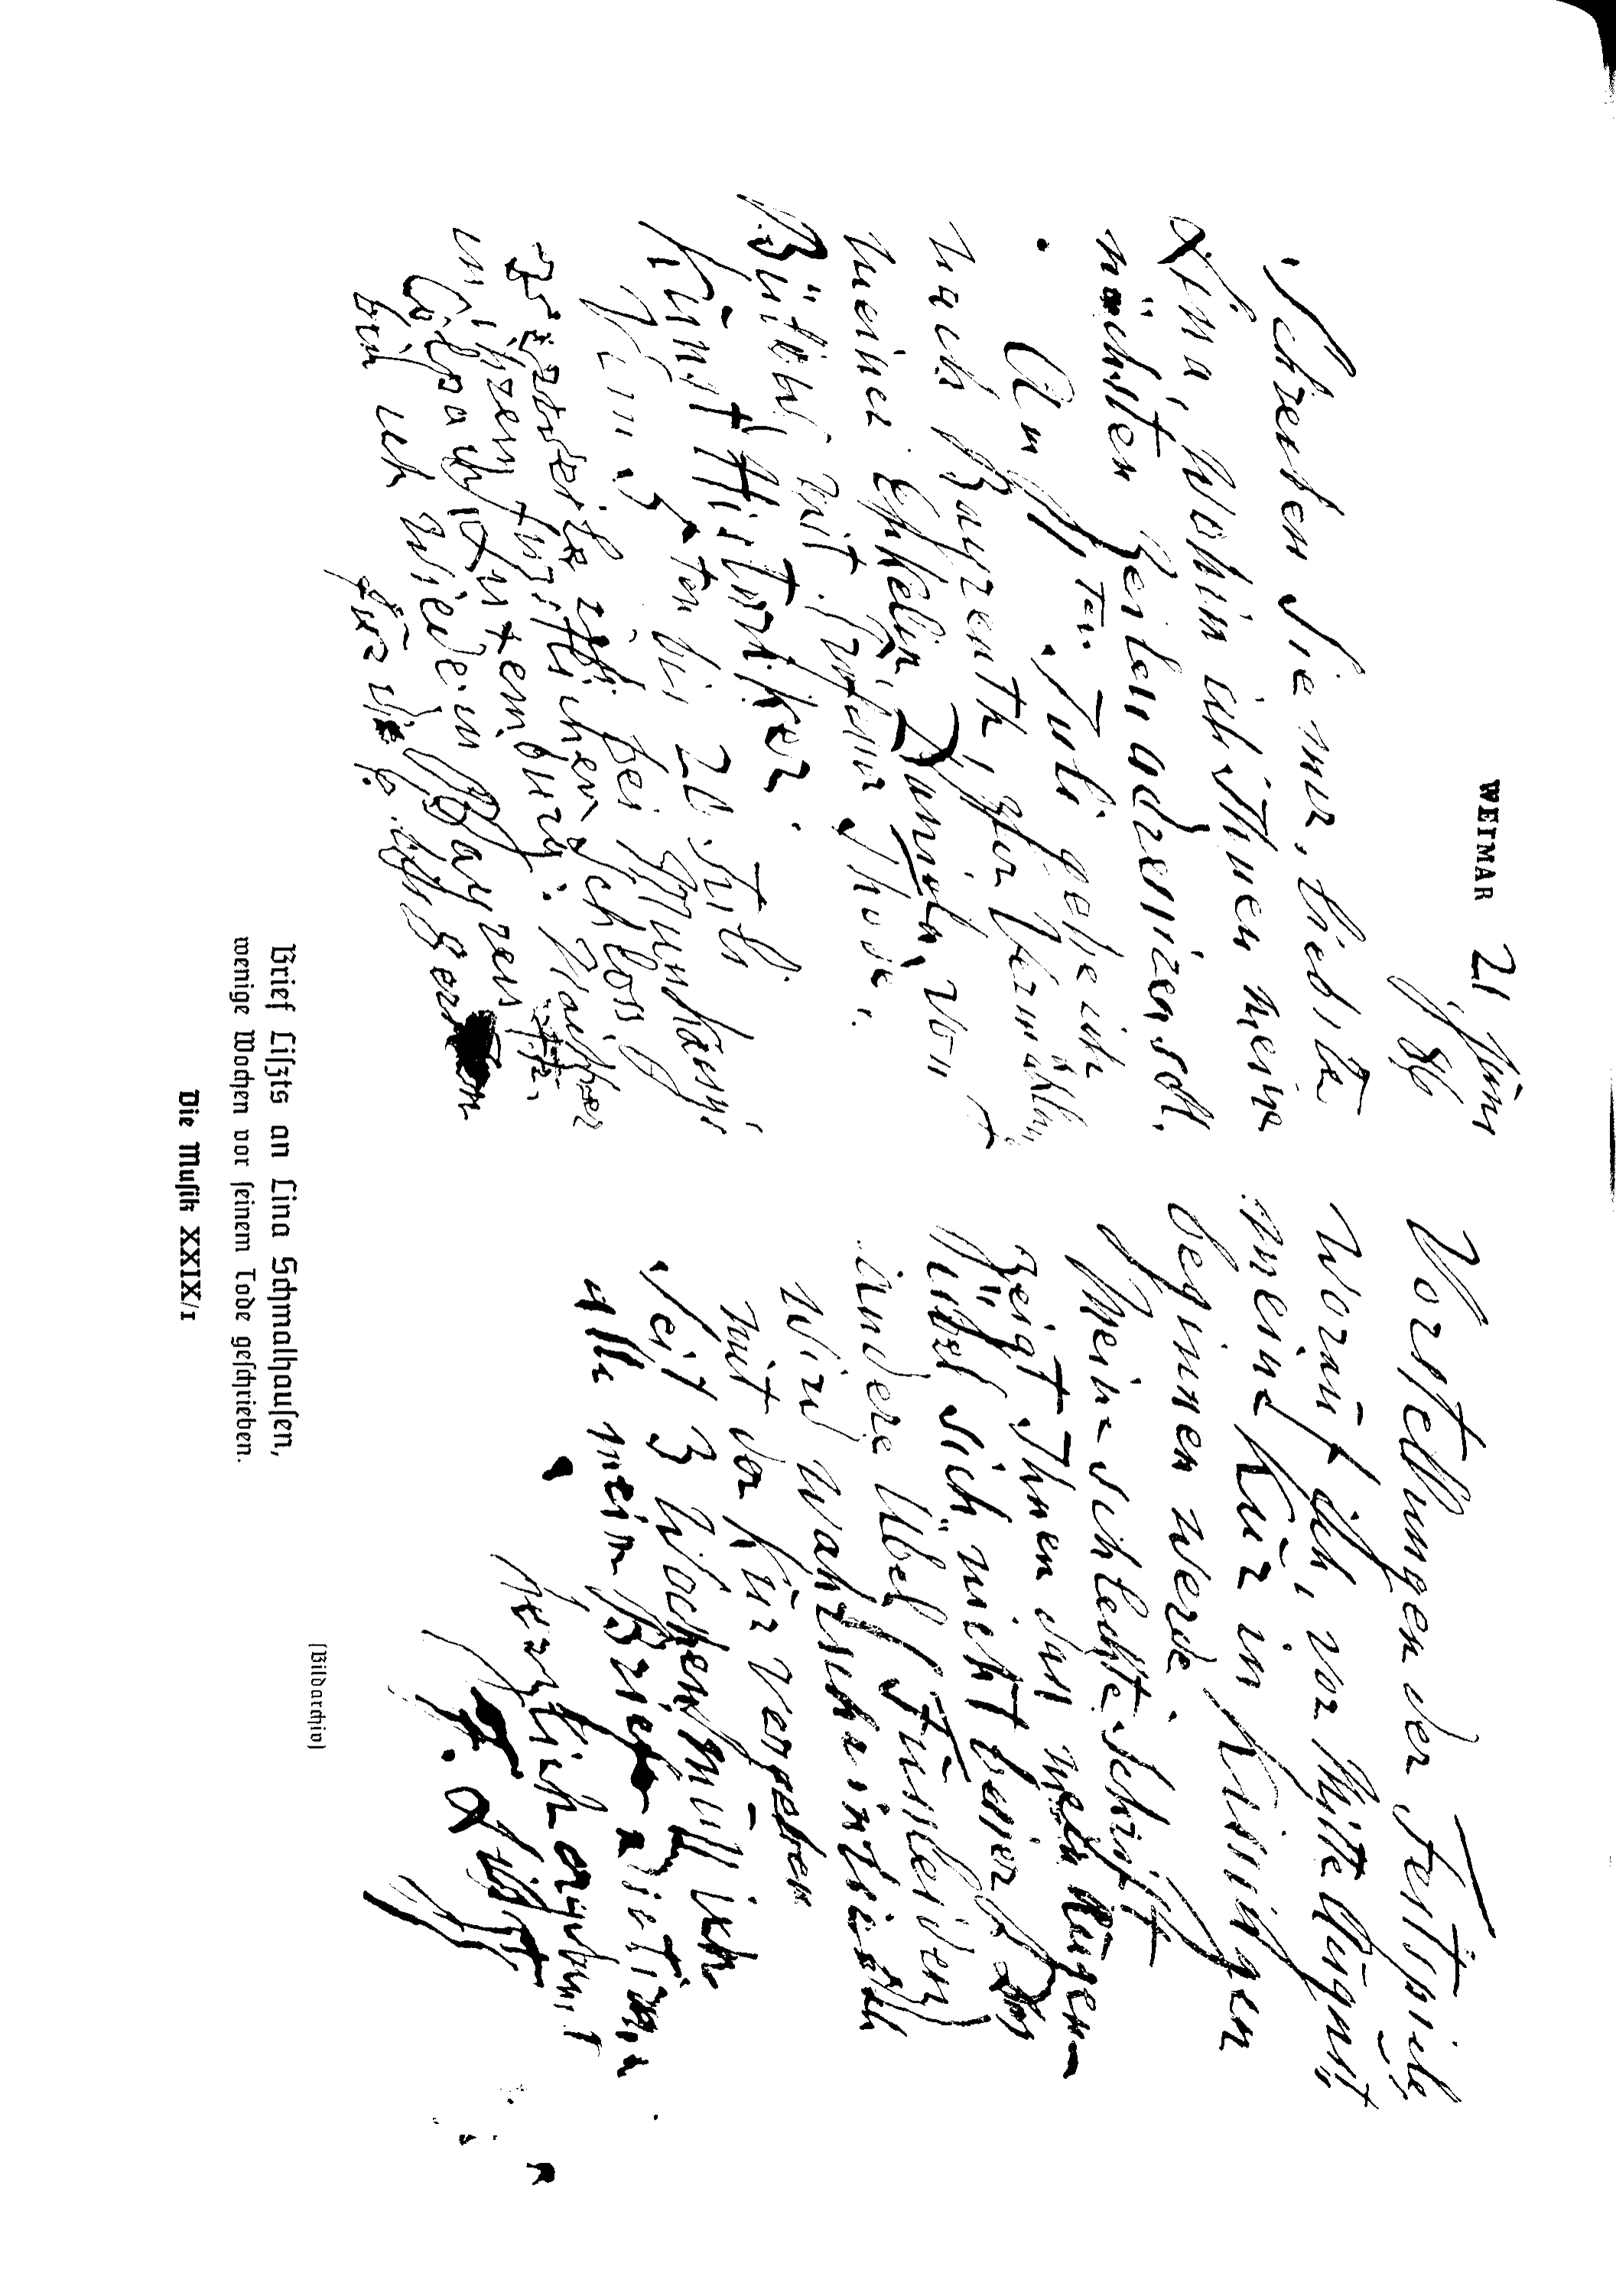 WEIMAR 21 Juni
86
Schreiben Sie mir, liebste
Lina, wohin ich Ihnen meine
nächsten Zeilen adressieren soll.
Am 1ten Juli gehe ich
nach Bayreuth, zur Vermählung
meiner Enkelin, Daniela von
Bülow mit Professor Thode,
Kunst Historiker.
Vom 5ten bis 20 Juli
verweile ich bei Munkacsy
in ihrem fürstlichen Schloss,
Colpach, Luxemburg. Nachher
bin ich wieder in Bayreuth,
für die
Vorstellungen der Festspiele
worauf ich, vor Mitte August
meine Kur in Kissingen
beginnen werde.
Meine schlechte Schrift
zeigt Ihnen dass mein Augen-
übel sich nicht bessert. Das
andere Übel (Füssleiden)
wird wahrscheinlich
mit der Kur vergehen
Seit 3 Wochen muss ich
alle meine Briefe
Herzlich ergebenst
F. Liszt
(Bildarchiv)
Brief Liszts an Lina Schmalhausen,
wenige Wochen vor seinem Tode geschrieben.
Die Musik XXIX/1